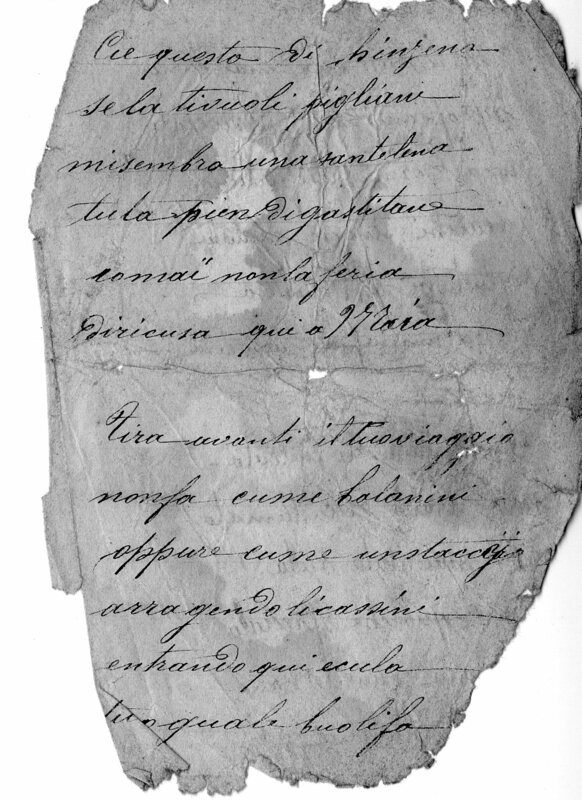 Cie questa di hinzena
se la tivuoli pigliani
misembra una santolina
tuta pien digastitave
comaï nonla feria
diricusa qui a Maria
Tira avanti iltuoviaggio
nonfa cume bolanini
oppure cume unstaccejo
arragendo licassini
entrando qui ecula
quale buolifa